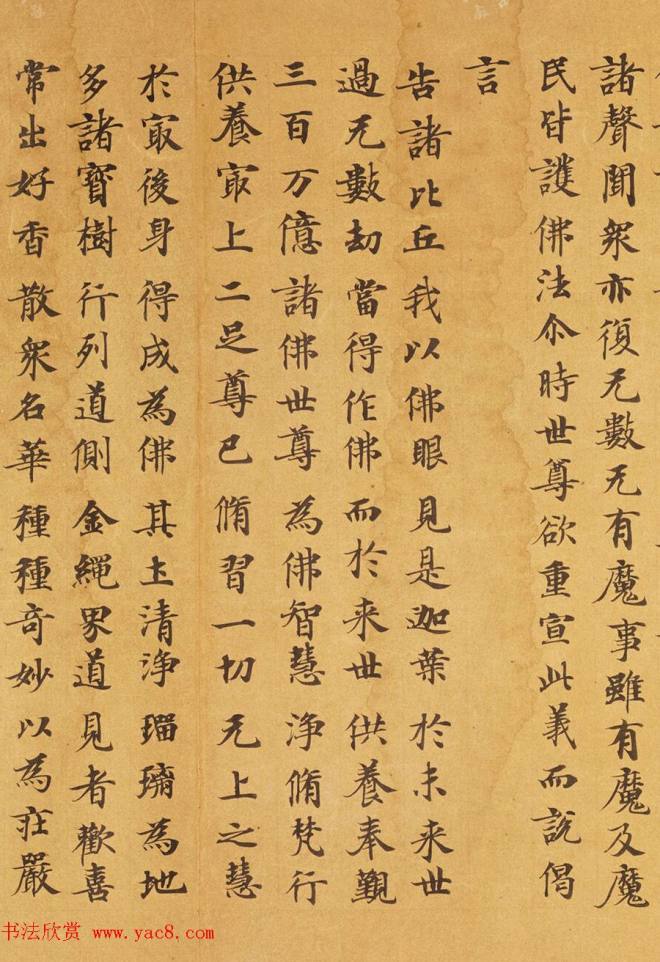 諸聲聞眾亦復无數无有魔事雖有魔及魔
民皆護佛法尒時世尊欲重宣此義而說偈
言
告諸比丘我以佛眼見是迦葉於未来世
過无數劫當得作佛而於来世供養奉覲
三百万億諸佛世尊為佛智慧淨脩梵行
供養㝡上二足尊已脩習一切无上之慧
於㝡後身得成為佛其土清淨瑠璃為地
多諸寶樹行列道側金繩界道見者歡喜
常出好香散眾名華種種奇妙以為莊嚴
书法欣赏 www.yac8.com